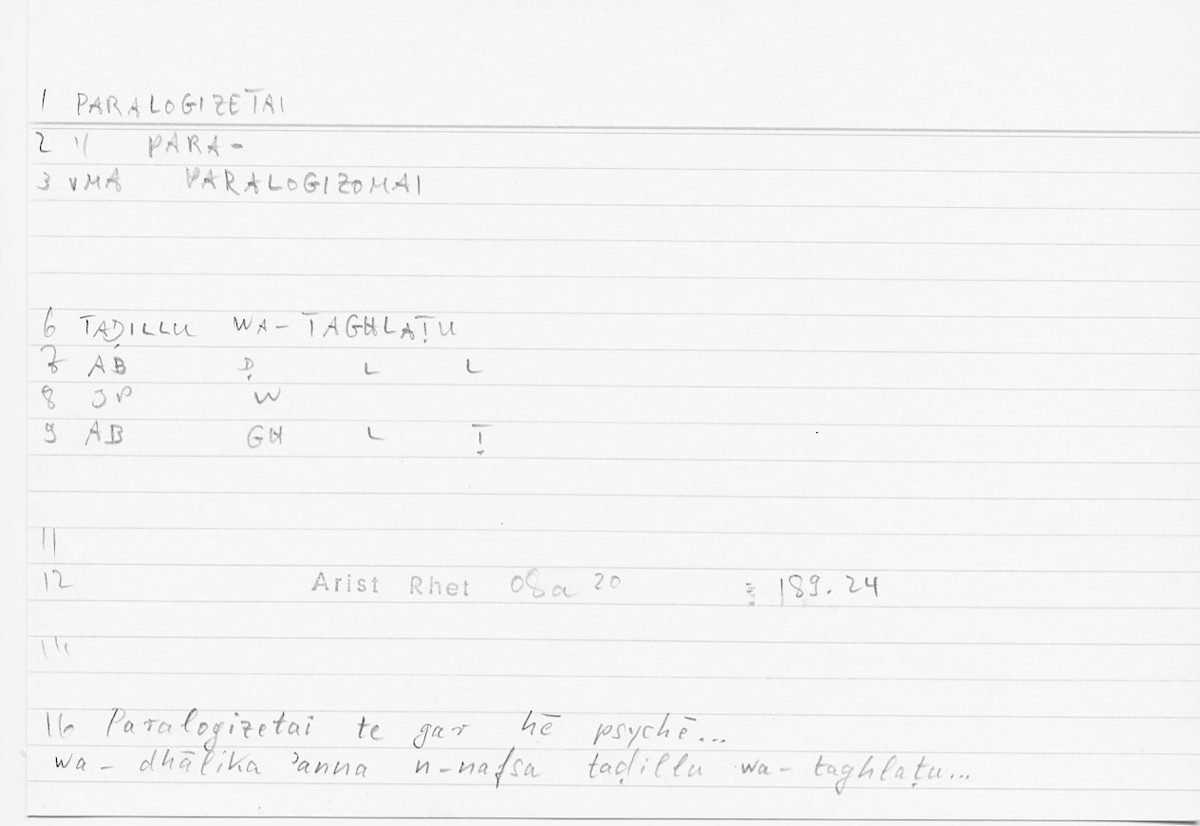 1 PARALOGIZETAI
2 " PARA-
3 VMA PARALOGIZOMAI
6 TAḌILLU WA-TAGHLAṬU
7 AB Ḍ L L
8 JP W
9 AB GH L Ṭ
11
12 Arist Rhet 08a 20 189.24
16 Paralogizetai te gar hē psychē...
wa-dhālika ʾanna n-nafsa taḍillu wa-taghlaṭu...